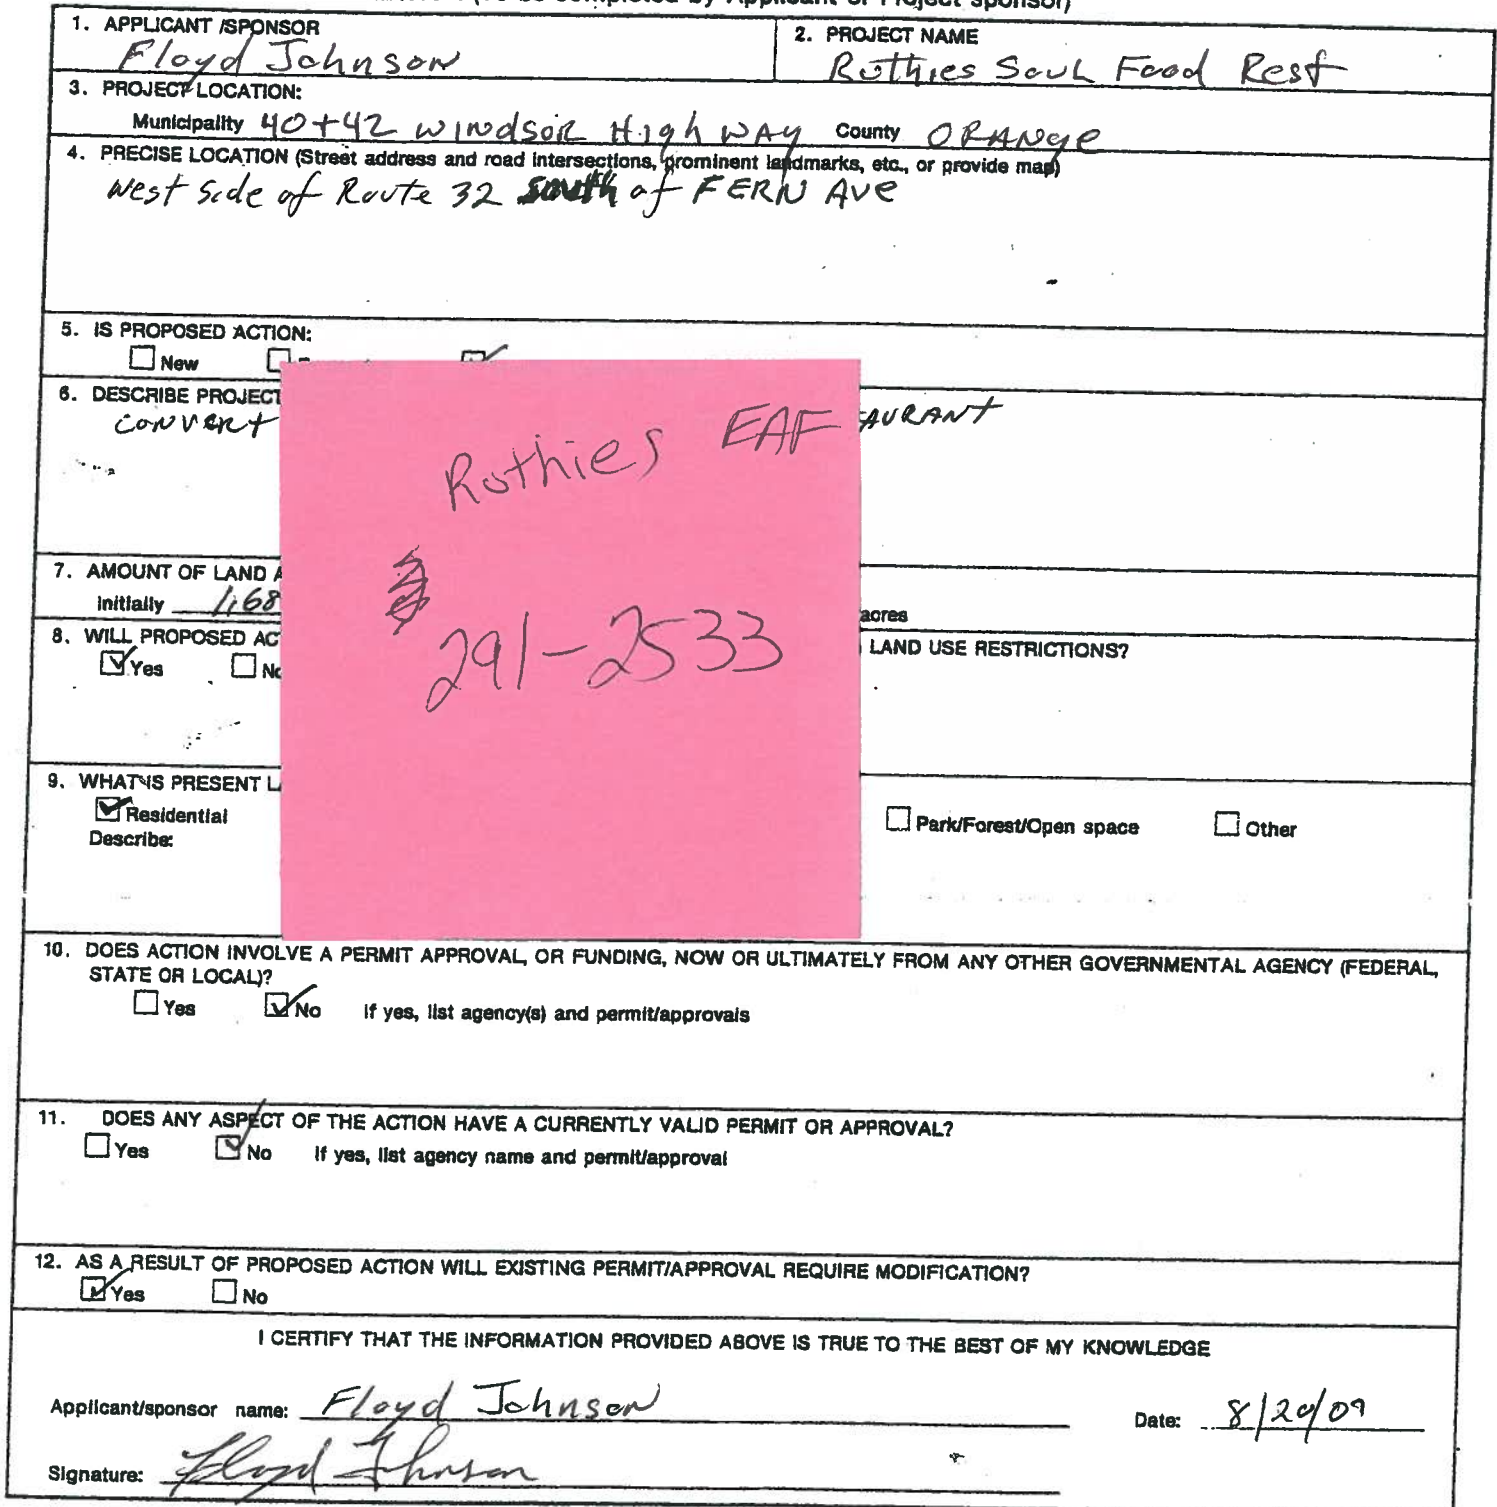 (To be completed by Applicant or Project sponsor)
1. APPLICANT /SPONSOR
Floyd Johnson
2. PROJECT NAME
Ruthies Soul Food Rest
3. PROJECT LOCATION:
Municipality 40+42 Windsor Highway County ORANge
4. PRECISE LOCATION (Street address and road intersections, prominent landmarks, etc., or provide map)
West side of Route 32 south of FERN Ave
5. IS PROPOSED ACTION:
New
6. DESCRIBE PROJECT
convert AURANT
Ruthies EAF
291-2533
7. AMOUNT OF LAND A
Initially 1.68 acres
8. WILL PROPOSED AC LAND USE RESTRICTIONS?
Yes No
9. WHAT IS PRESENT LA
Residential Park/Forest/Open space Other
Describe:
10. DOES ACTION INVOLVE A PERMIT APPROVAL, OR FUNDING, NOW OR ULTIMATELY FROM ANY OTHER GOVERNMENTAL AGENCY (FEDERAL,
STATE OR LOCAL)?
Yes No If yes, list agency(s) and permit/approvals
11. DOES ANY ASPECT OF THE ACTION HAVE A CURRENTLY VALID PERMIT OR APPROVAL?
Yes No If yes, list agency name and permit/approval
12. AS A RESULT OF PROPOSED ACTION WILL EXISTING PERMIT/APPROVAL REQUIRE MODIFICATION?
Yes No
I CERTIFY THAT THE INFORMATION PROVIDED ABOVE IS TRUE TO THE BEST OF MY KNOWLEDGE
Applicant/sponsor name: Floyd Johnson Date: 8/20/09
Signature: Floyd Johnson